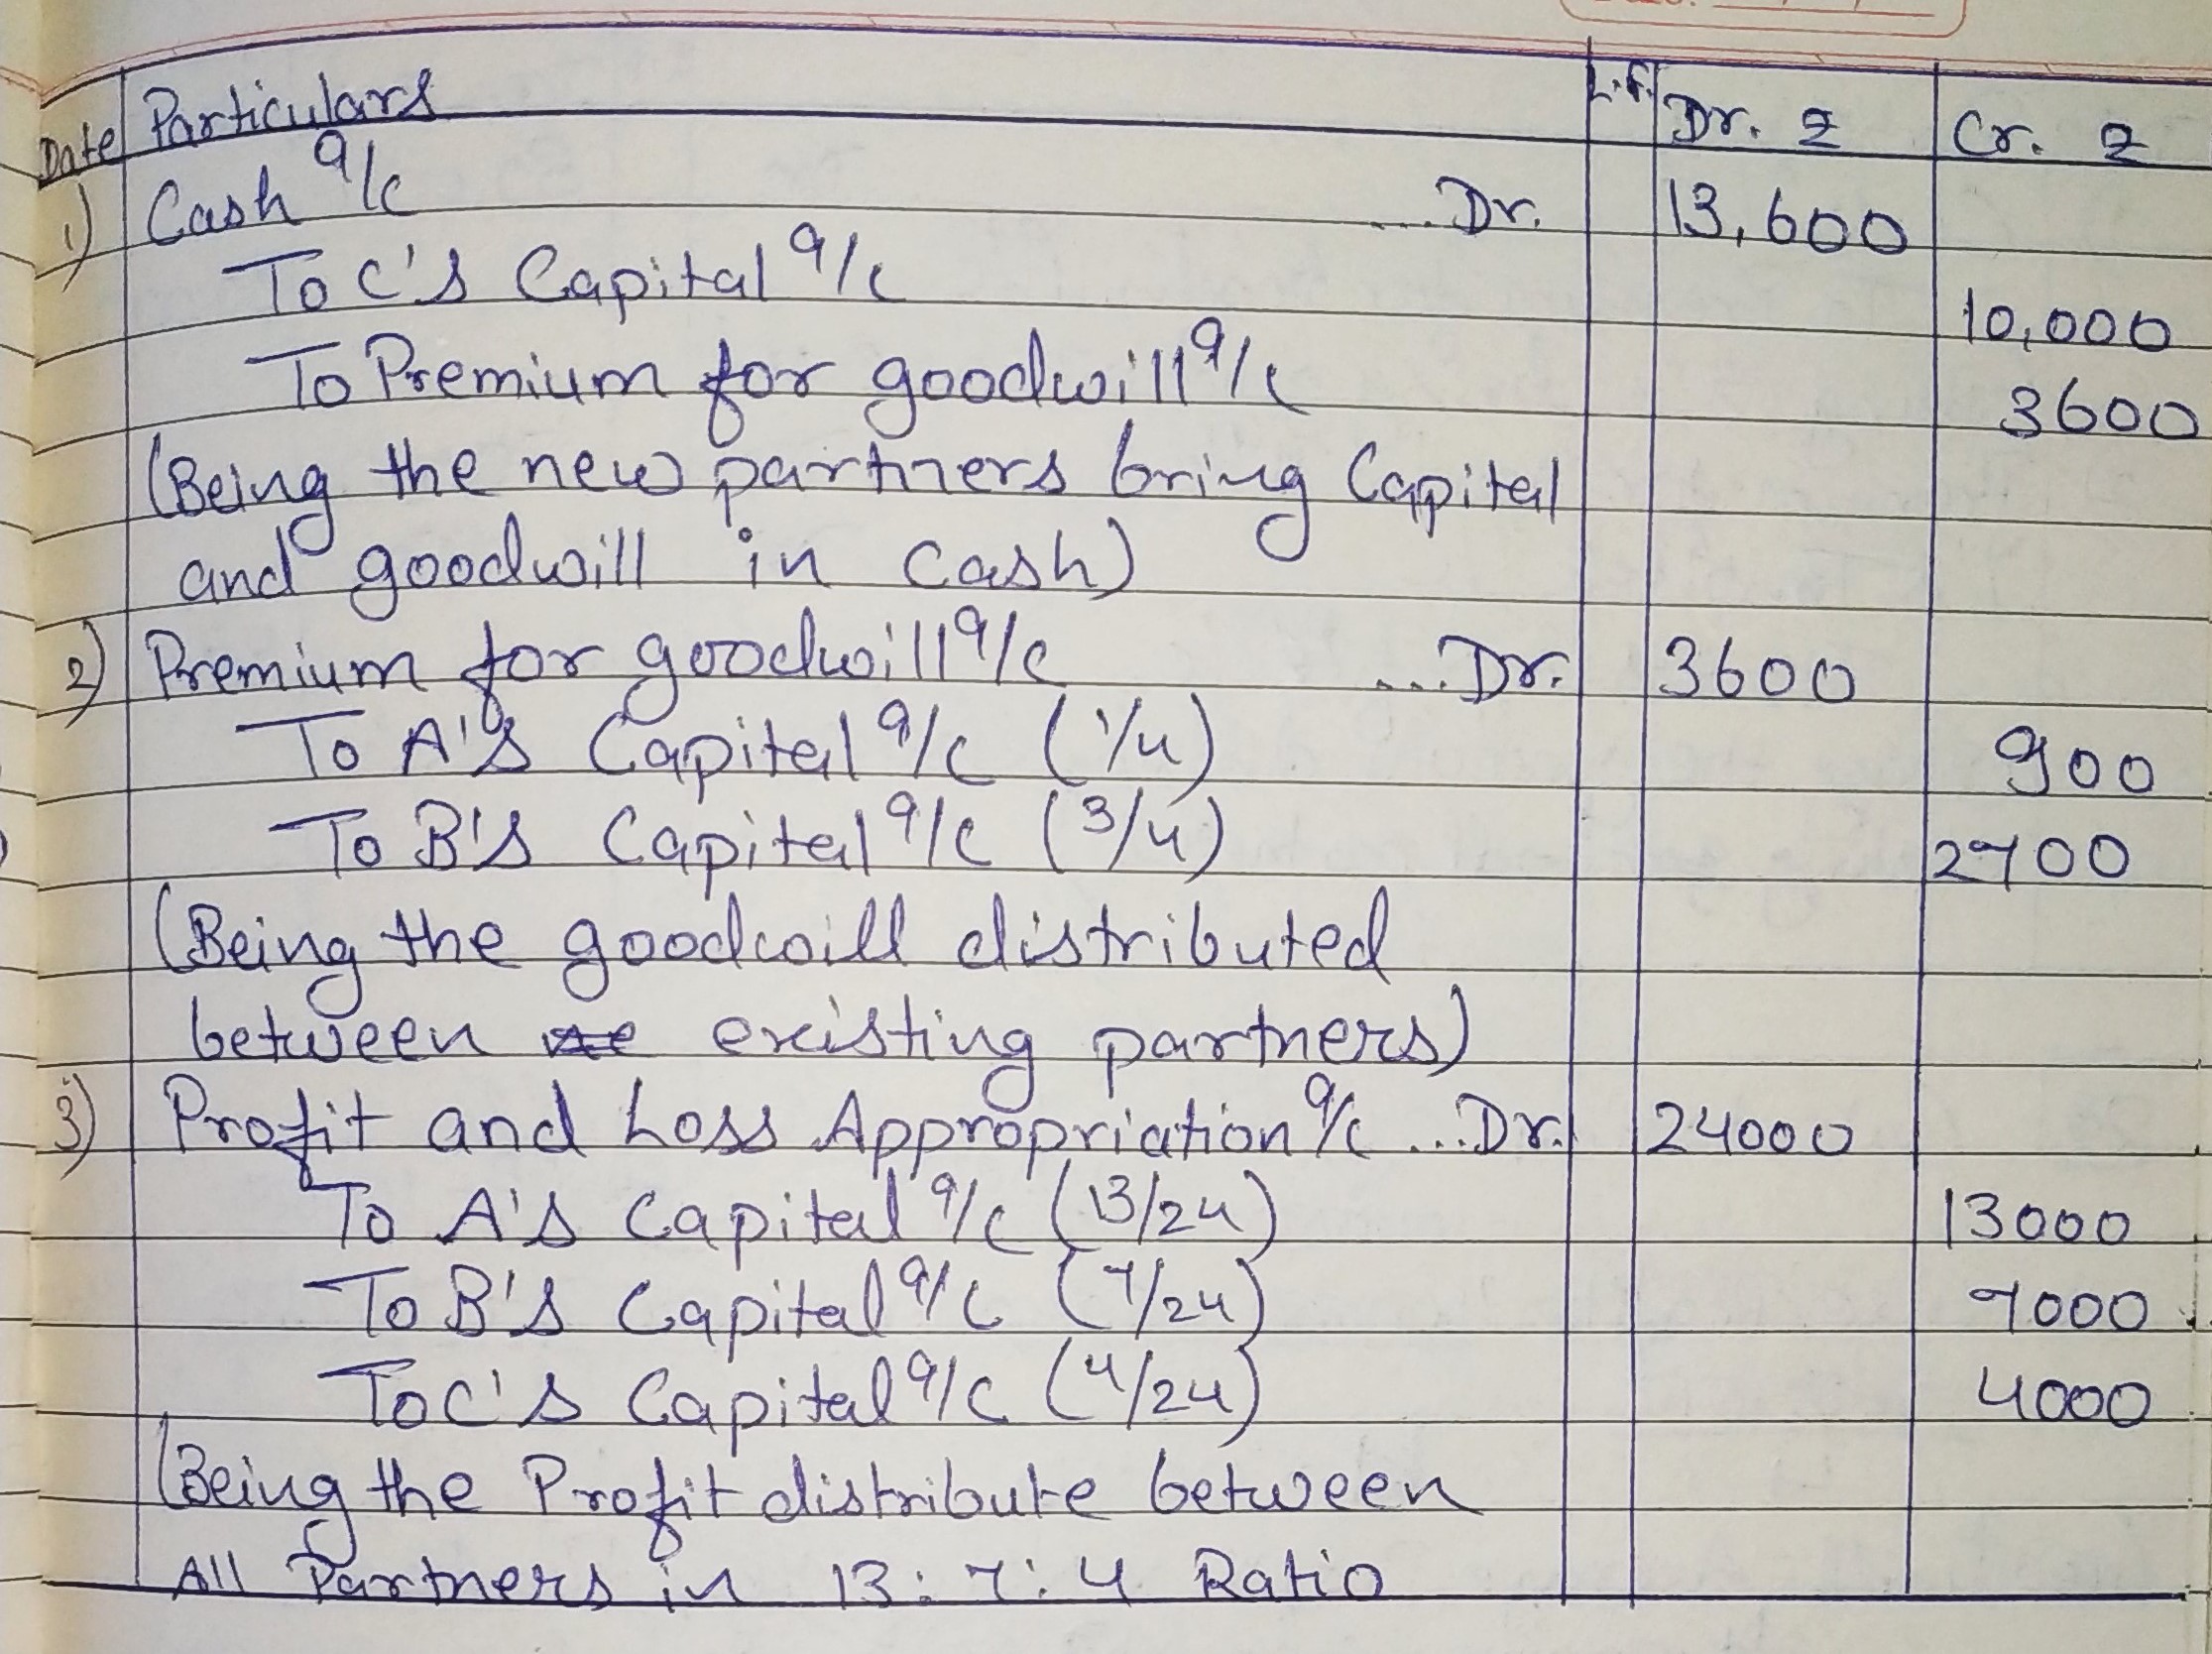 Date Particulars L.F. Dr. ₹ Cr. ₹
1) Cash a/c ....Dr. 13,600
To C's Capital a/c 10,000
To Premium for goodwill a/c 3600
(Being the new partners bring Capital
and goodwill in cash)
2) Premium for goodwill a/c ....Dr. 3600
To A's Capital a/c (1/4) 900
To B's Capital a/c (3/4) 2700
(Being the goodwill distributed
between existing partners)
3) Profit and Loss Appropriation a/c ...Dr. 24000
To A's Capital a/c (13/24) 13000
To B's Capital a/c (7/24) 7000
To C's Capital a/c (4/24) 4000
(Being the Profit distribute between
All Partners in 13:7:4 Ratio